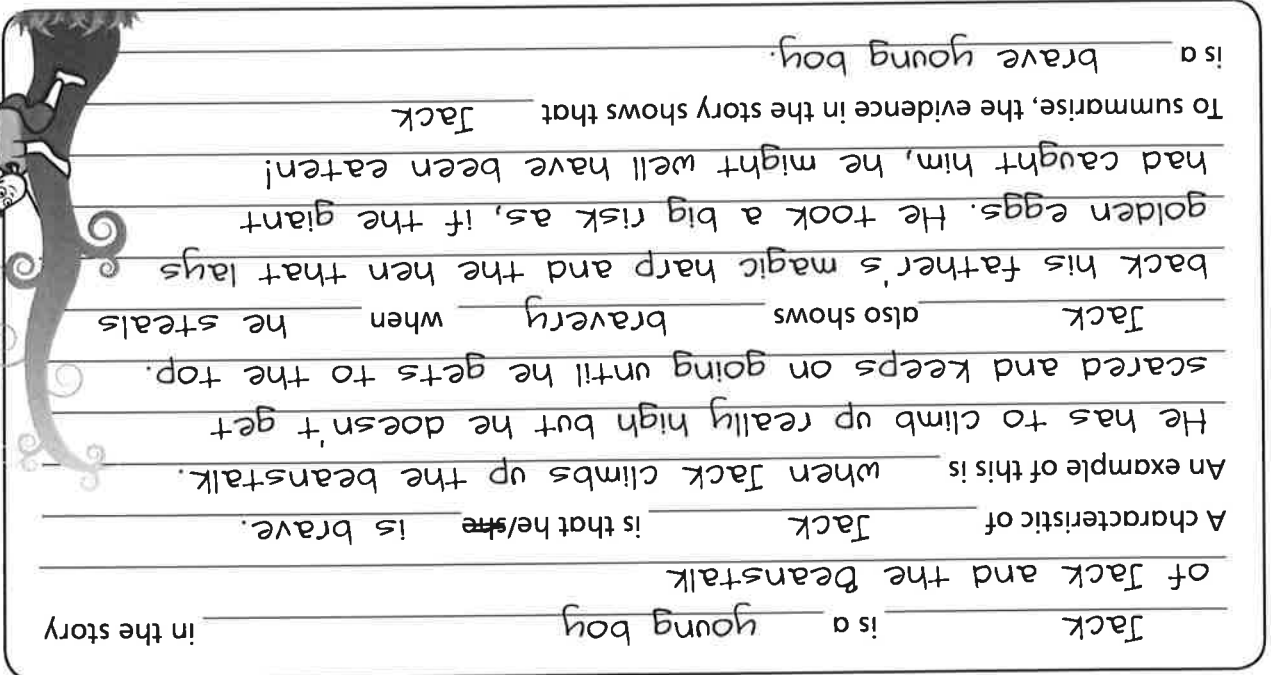 Jack is a young boy in the story
of Jack and the Beanstalk
A characteristic of Jack is that he/she is brave.
An example of this is when Jack climbs up the beanstalk.
He has to climb up really high but he doesn't get
scared and keeps on going until he gets to the top.
Jack also shows bravery when he steals
back his father's magic harp and the hen that lays
golden eggs. He took a big risk as, if the giant
had caught him, he might well have been eaten!
To summarise, the evidence in the story shows that Jack
is a brave young boy.